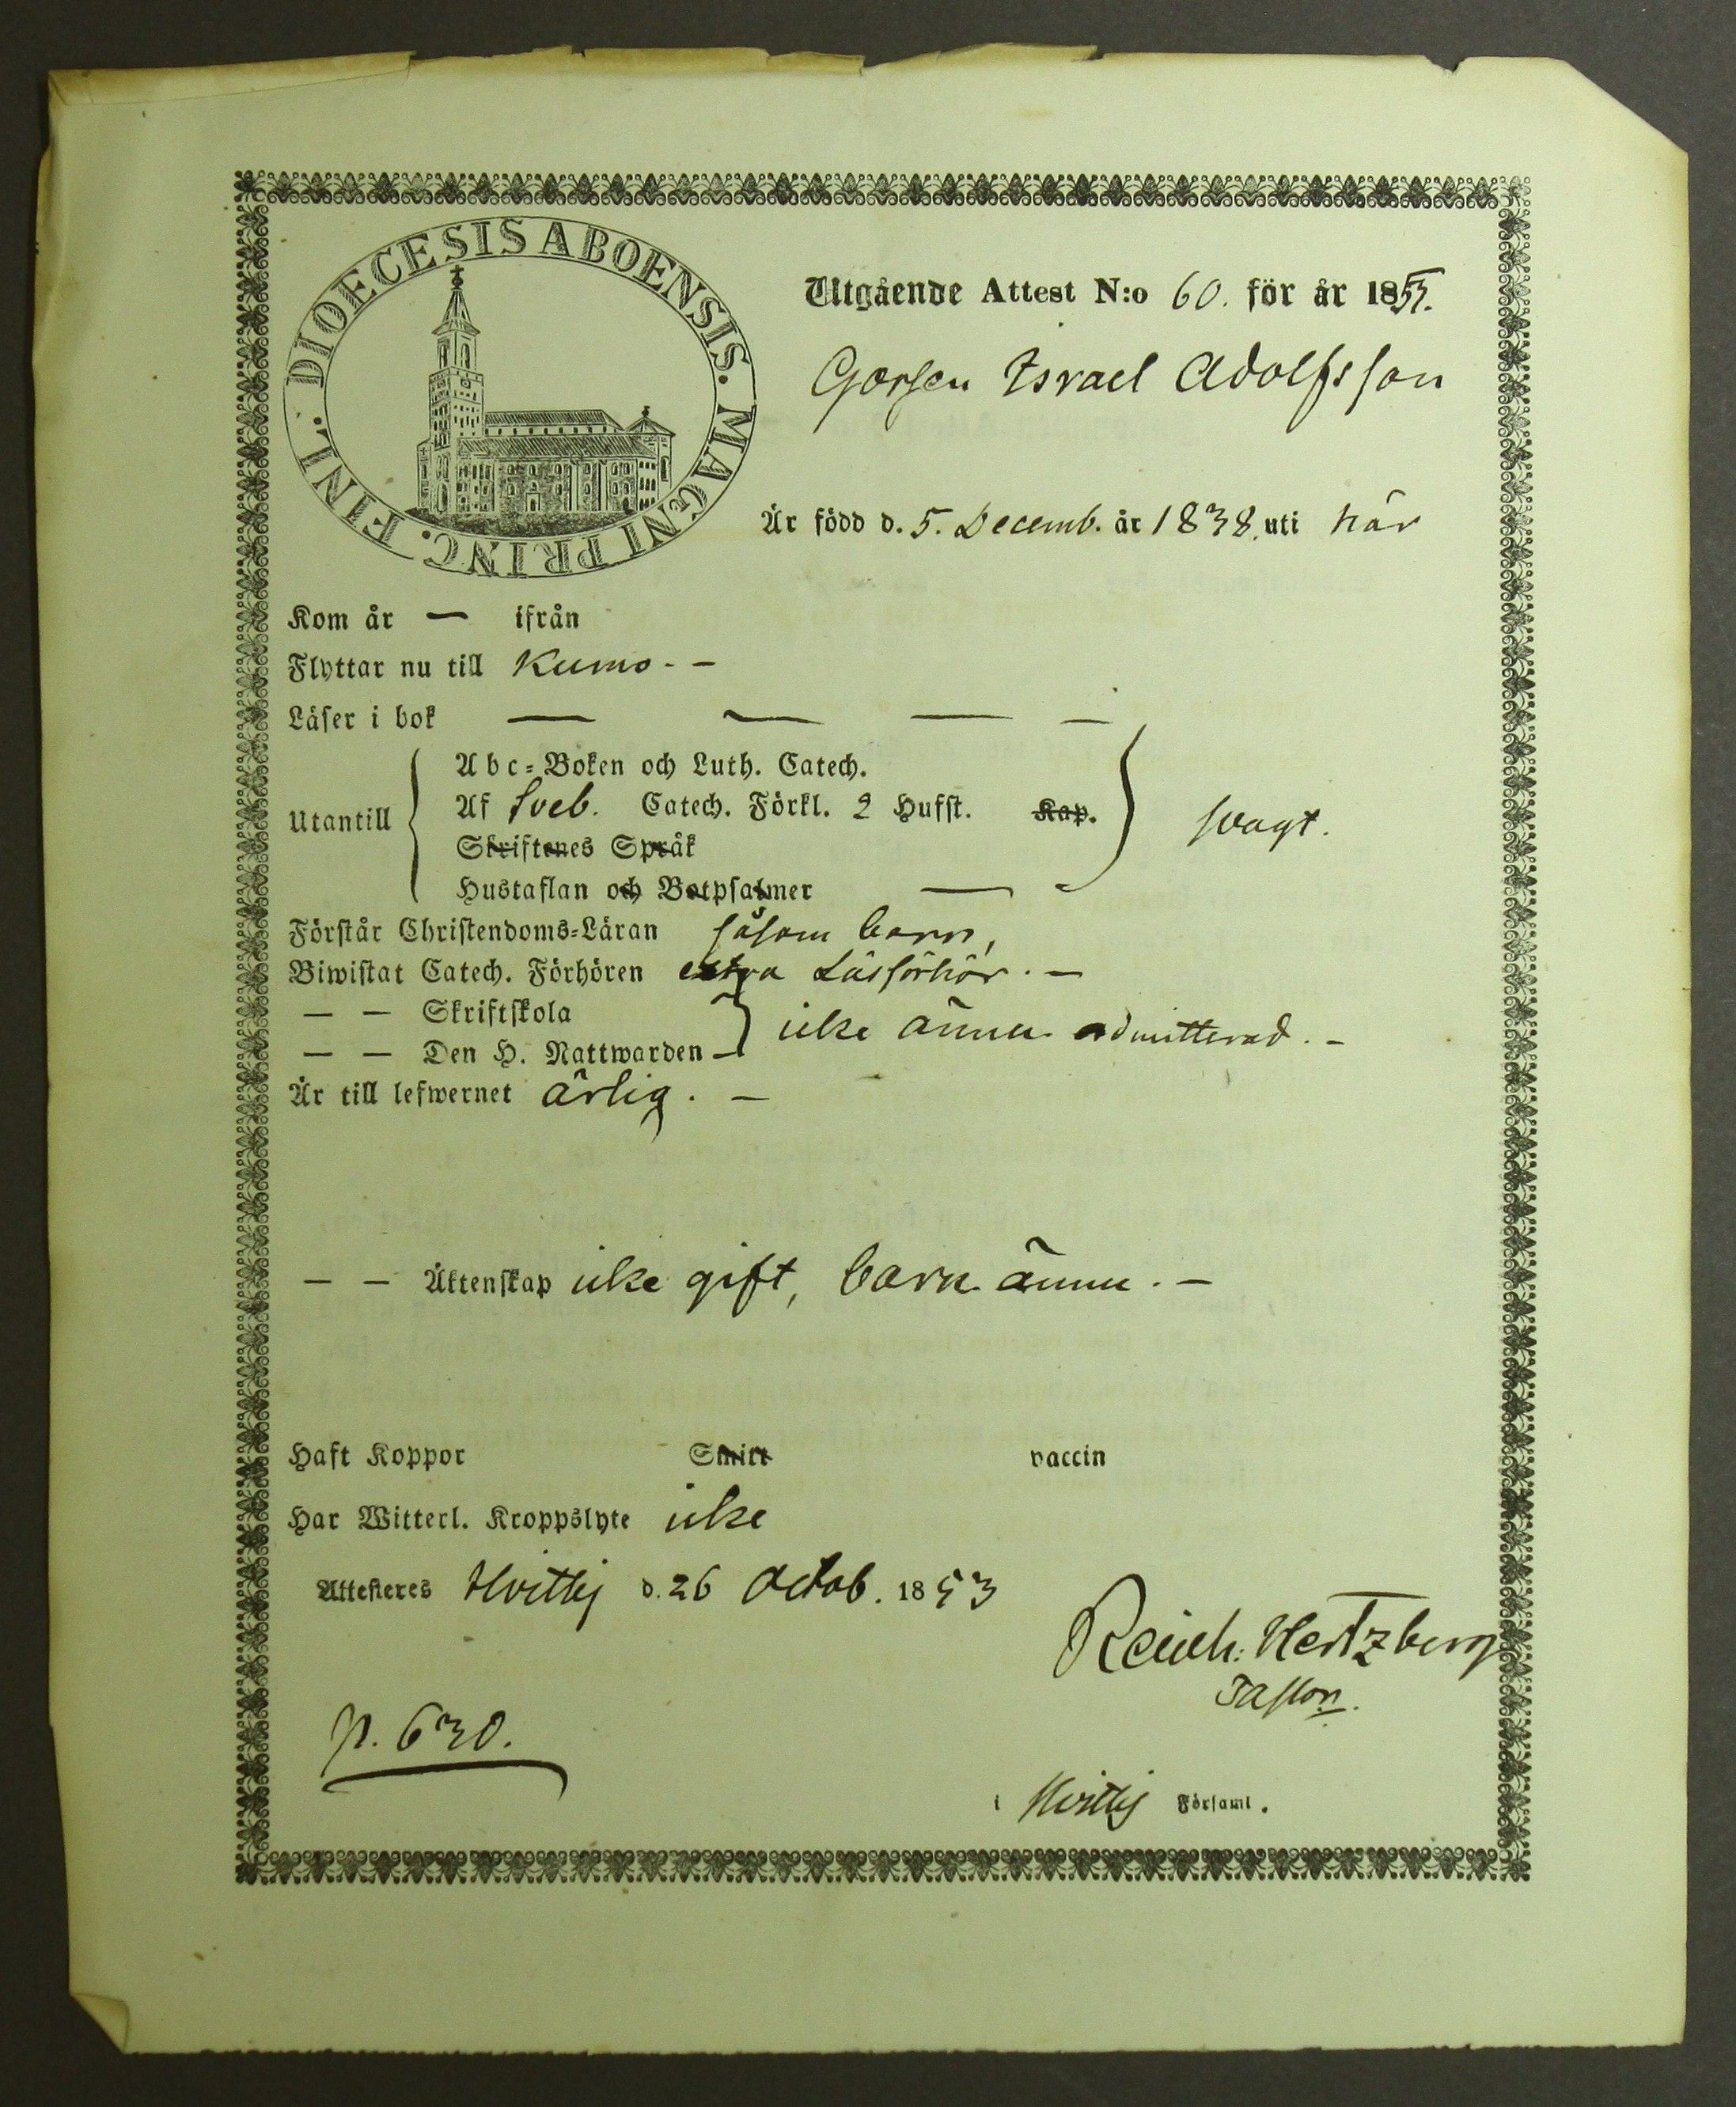 DIOECESIS ABOENSIS. MAGNI PRINC. FINL.
Utgående Attest N:o 60. för år 1853.
Gossen Israel Adolfsson
Är född d. 5. Decemb. år 1838. uti här
Kom år — ifrån
Flyttar nu till Kumo - -
Läser i bok — — — —
Utantill
Abc-Boken och Luth. Catech.
Af Sveb. Catech. Förkl. 2 Hufst. Kap.
Skriftenes Språk
Hustaflan och Botpsalmer —
svagt.
Förstår Christendoms-Läran såsom barn,
Biwistat Catech. Förhören extra Läsförhör. -
— — Skriftskola
— — Den H. Nattwarden —
icke ännu admitterad. -
Är till lefwernet ärlig. —
— — Äktenskap icke gift, barn ännu. -
Haft Koppor Smitt vaccin
Har Witterl. Kroppslyte icke
Attesteres Hvittis d. 26 Octob. 1853
Hertzberg
Pastor.
p. 630.
i Hvittis Församl.